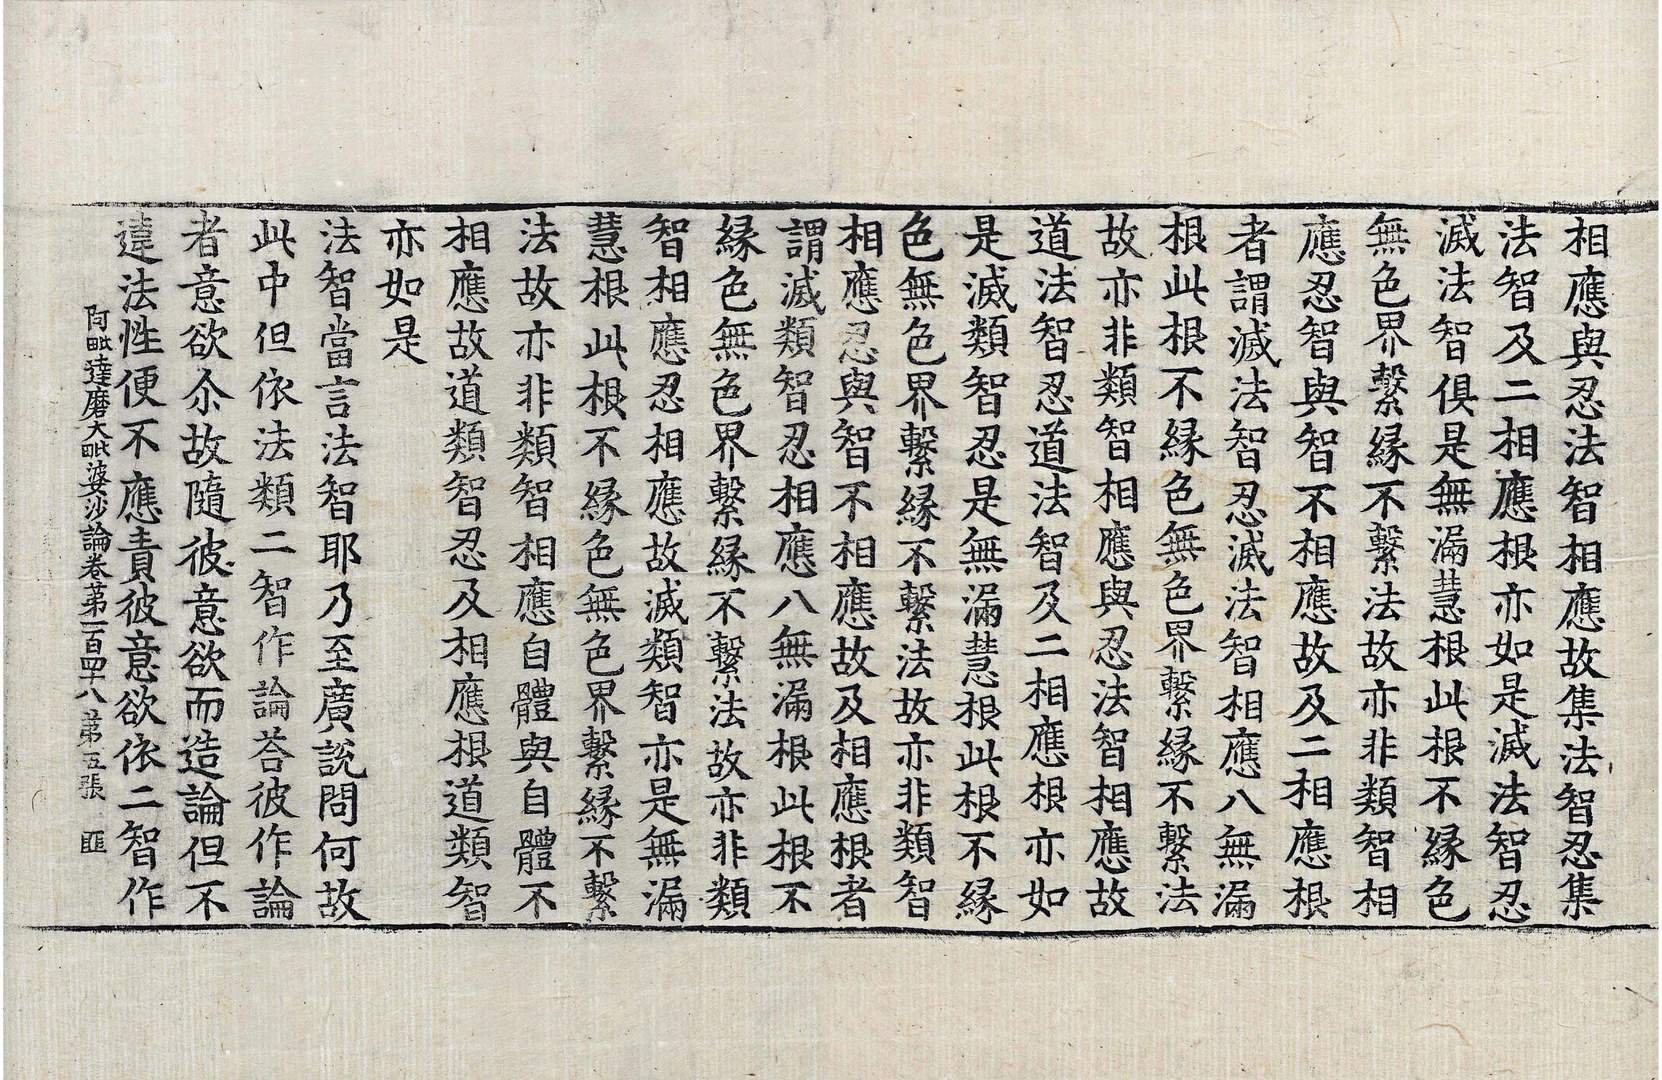 相應與忍法智相應故集法智忍集
法智及二相應根亦如是滅法智忍
滅法智俱是無漏慧根此根不縁色
無色界繫縁不繫法故亦非類智相
應忍智與智不相應故及二相應根
者謂滅法智忍滅法智相應八無漏
根此根不縁色無色界繫縁不繫法
故亦非類智相應與忍法智相應故
道法智忍道法智及二相應根亦如
是滅類智忍是無漏慧根此根不縁
色無色界繫縁不繫法故亦非類智
相應忍與智不相應故及相應根者
謂滅類智忍相應八無漏根此根不
縁色無色界繫縁不繫法故亦非類
智相應忍相應故滅類智亦是無漏
慧根此根不縁色無色界繫縁不繫
法故亦非類智相應自體與自體不
相應故道類智忍及相應根道類智
亦如是
法智當言法智耶乃至廣說問何故
此中但依法類二智作論荅彼作論
者意欲尒故隨彼意欲而造論但不
違法性便不應責彼意欲依二智作
阿毗達磨大毗婆沙論卷第一百四十八 第五張 匪